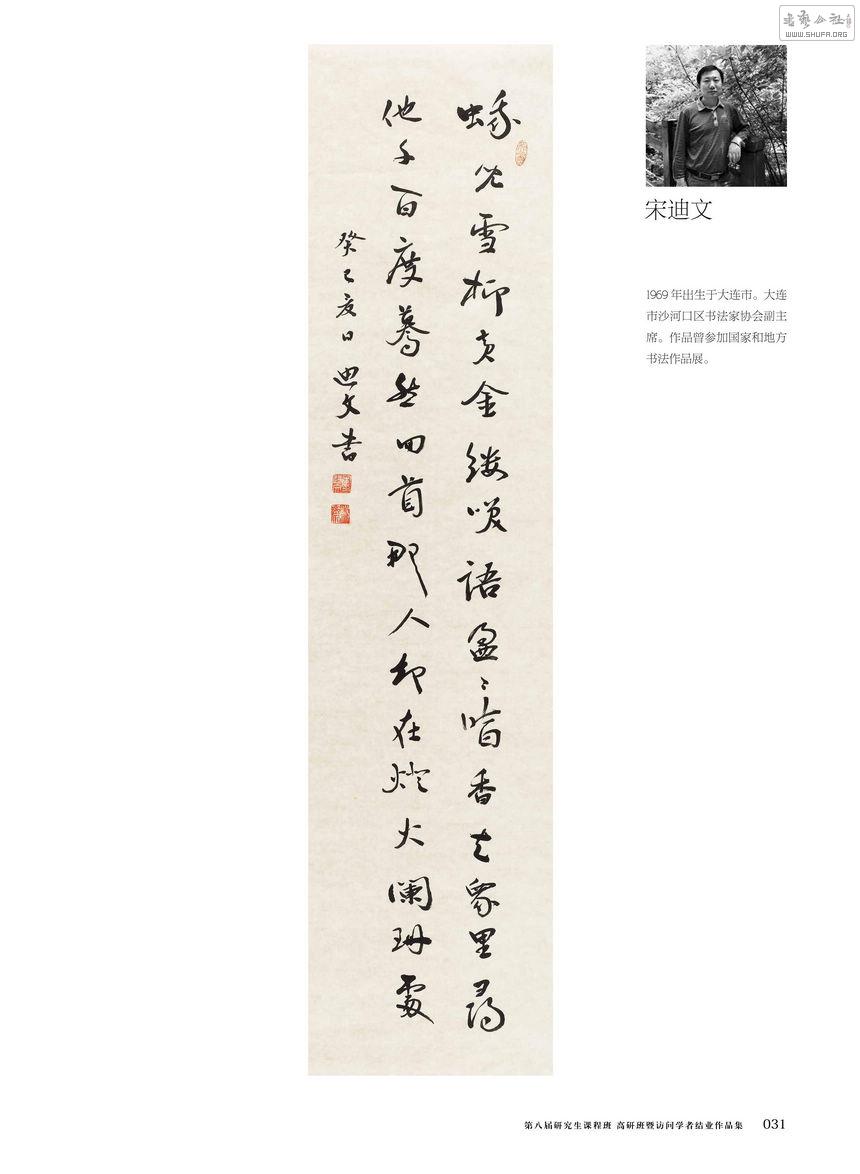 書藝公社
WWW.SHUFA.ORG
蛾兒雪柳黃金縷笑語盈〻暗香去眾里尋
他千百度驀然回首那人却在燈火闌珊處
癸巳夏日迪文書
宋迪文
1969年出生于大连市。大连
市沙河口区书法家协会副主
席。作品曾参加国家和地方
书法作品展。
第八届研究生课程班 高研班暨访问学者结业作品集 031